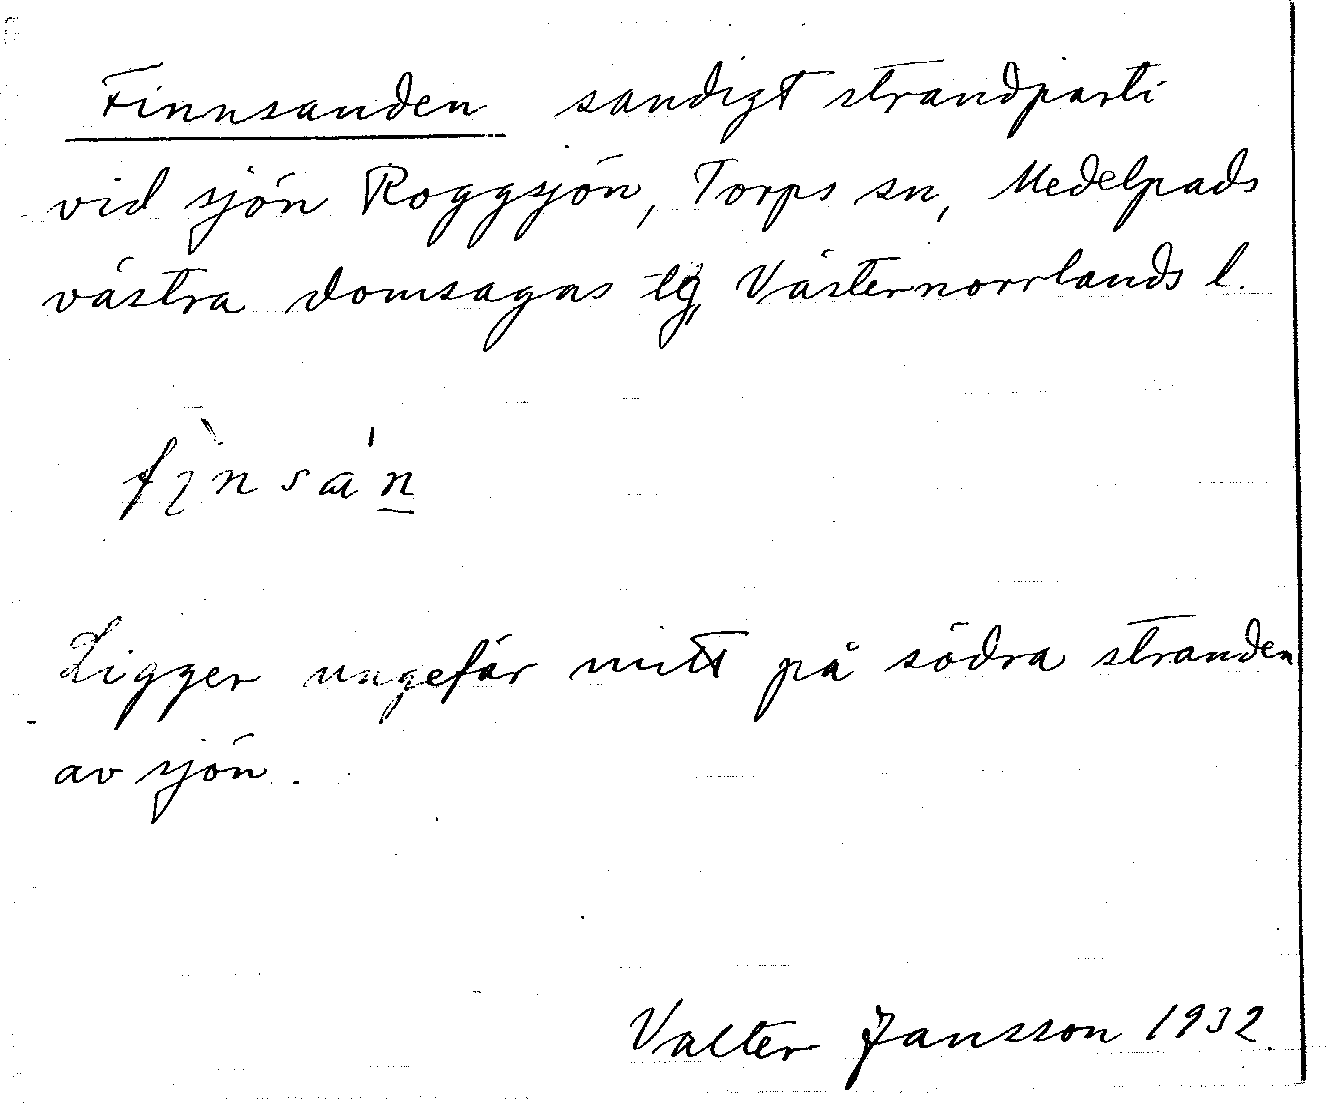 Finnsanden sandigt strandparti
vid sjön Roggsjön, Torps sn, Medelpads
västra domsagas tg, Västernorrlands l.
fìnsa'n
Ligger ungefär mitt på södra stranden
av sjön.
Valter Jansson 1932.